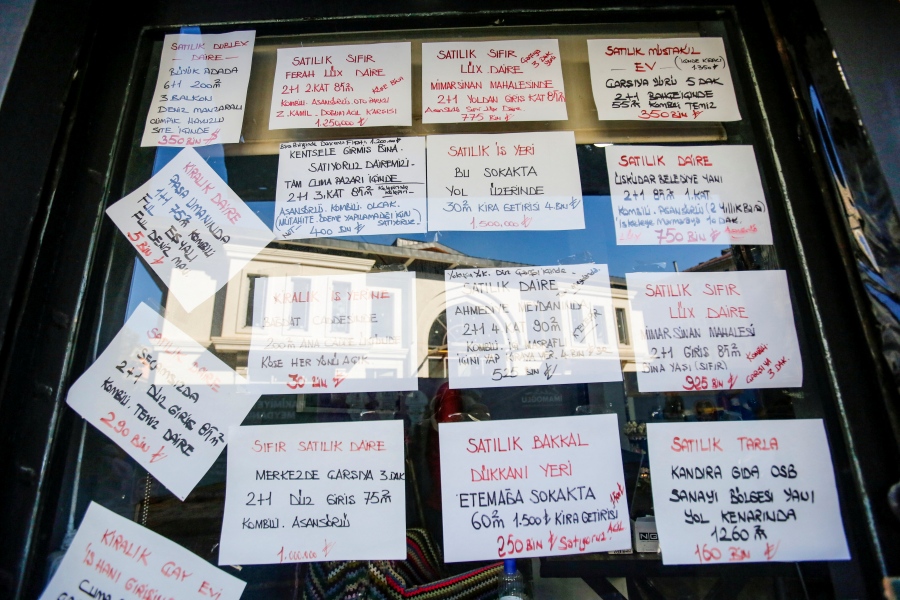 SATILIK DUBLEX
DAİRE
BÜYÜK ADADA
6+1 200m²
3 BALKON
DENİZ MANZARALI
OLİMPİK HAVUZLU
SİTE İÇİNDE
350 BİN ₺
SATILIK SIFIR
FERAH LÜX DAİRE
2+1 2.KAT 85m²
KOMBİLİ. ASANSÖRLÜ OTOPARKLI
Z. KAMİL. DOĞUM ACİL KARŞISI
1.250.000 ₺
SATILIK SIFIR
LÜX DAİRE
MİMARSİNAN MAHALESİNDE
2+1 YOLDAN GİRİŞ KAT 85m²
775 BİN ₺
SATILIK MÜSTAKİL
EV
ÇARŞIYA YÜRÜ 5 DAK
2+1 BAHÇE İÇİNDE
55m² KOMBİLİ TEMİZ
350 BİN ₺
KENTSELE GİRMİŞ BİNA
SATIYORUZ DAİREMİZİ.
TAM CUMA PAZARI İÇİNDE
2+1 3.KAT 85m²
ASANSÖRLÜ. KOMBİLİ. OLCAK.
(MÜTAHİTE. ÖDEME YAPILAMADIĞI İÇİN
NOT 400 BİN ₺ SATIYORUZ.)
SATILIK İŞ YERİ
BU SOKAKTA
YOL ÜZERİNDE
30m² KİRA GETİRİSİ 4.BİN ₺
1.500.000 ₺
SATILIK DAİRE
ÜSKÜDAR BELEDİYE YANI
2+1 85m² 1.KAT
KOMBİLİ. ASANSÖRLÜ (2 YILLIK BİNA)
İskeleye Marmaraya 10 DAK.
750 BİN ₺
KİRALIK DAİRE
PAŞA LİMANINDA
1+1 75m² KOMBİLİ
FUL EŞYALI
FUL DENİZ MA.
5 BİN ₺
KİRALIK İŞ YERİNE
BAĞDAT CADDESİNDE
200m² ANA CADDE ÜSTÜNDE
KÖŞE HER YÖNÜ AÇIK
30 BİN ₺
SATILIK DAİRE
AHMEDİYE MEYDANINDA
2+1 4.KAT 90m²
525 BİN ₺
SATILIK SIFIR
LÜX DAİRE
MİMAR SİNAN MAHALESİ
2+1 GİRİŞ 85m²
BİNA YAŞI (SIFIR)
KOMBİLİ
ÇARŞIYA
3.DAK.
925 BİN ₺
SATILIK
2+1 DÜZ GİRİŞ 85m²
KOMBİLİ. TEMİZ DAİRE
290 BİN ₺
SIFIR SATILIK DAİRE
MERKEZDE ÇARŞIYA 3.DAK
2+1 DÜZ GİRİŞ 75m²
KOMBİLİ. ASANSÖRLÜ
1.000.000 ₺
SATILIK BAKKAL
DÜKKANI YERİ
ETEMAĞA SOKAKTA
60m² 1.500 ₺ KİRA GETİRİSİ
250 BİN ₺ SATIYORUZ ACİL
SATILIK TARLA
KANDIRA GIDA OSB
SANAYİ BÖLGESİ YANI
YOL KENARINDA
1260m²
160 BİN ₺
KİRALIK ÇAY EVİ
İŞ HANI GİRİŞİNDE
CUMA